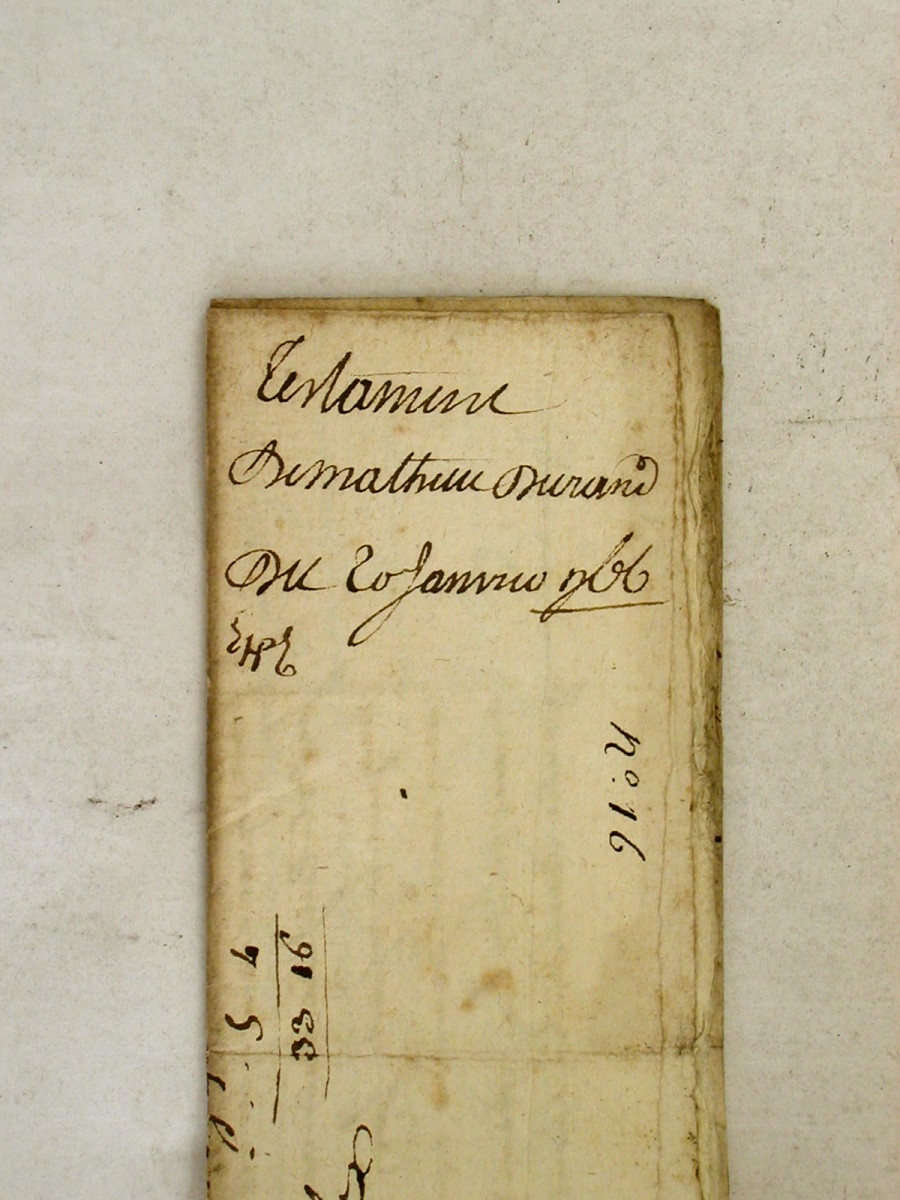 Testament
De mathieu Durand
Du 20 Janvier 1766
N.o 16
5 4
33 16